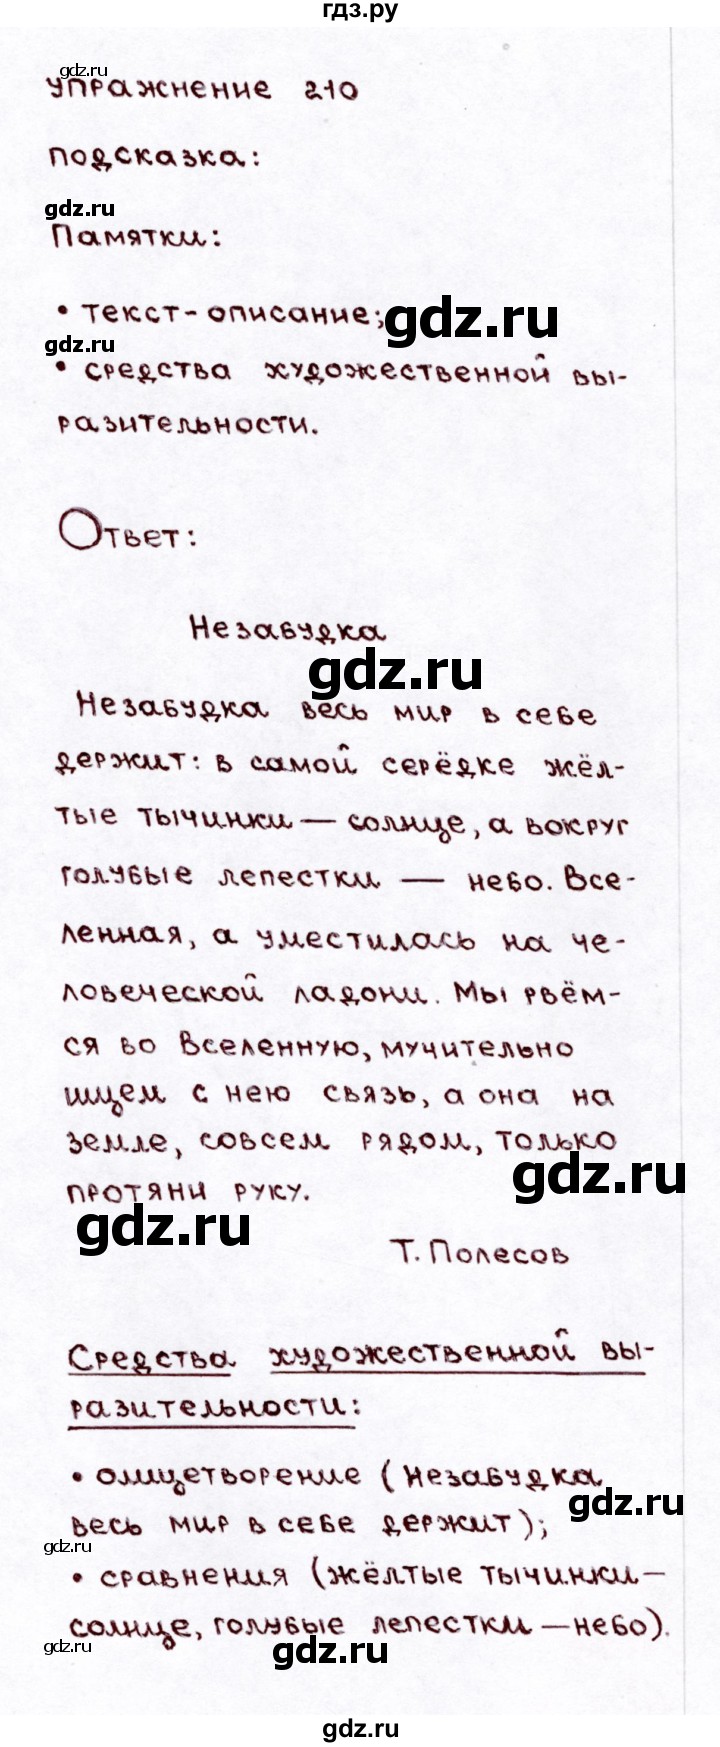 гдз.ру
gdz.ru
Упражнение 210
Подсказка:
gdz.ru
Памятки:
• текст-описание;
gdz.ru
gdz.ru
• средства художественной вы-
разительности.
Ответ:
Незабудка
gdz.ru
Незабудка весь мир в себе
держит: в самой серёдке жёл-
тые тычинки — солнце, а вокруг
голубые лепестки — небо. Все-
ленная, а уместилась на че-
ловеческой ладони. Мы рвём-
ся во Вселенную, мучительно
ищем с нею связь, а она на
земле, совсем рядом, только
gdz.ru
протяни руку.
gdz.ru
Т. Полесов
Средства художественной вы-
разительности:
• олицетворение (Незабудка
gdz.ru
весь мир в себе держит);
gdz.ru
• сравнения (жёлтые тычинки —
солнце, голубые лепестки — небо).
gdz.ru
gdz.ru
gdz.ru